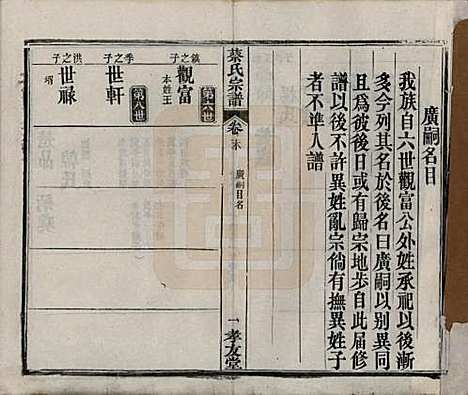 廣嗣名目
我族自六世觀富公外姓承祀以後漸
多今列其名於後名曰廣嗣以别異同
且爲彼後日或有歸宗地步自此届修
譜以後不許異姓亂宗倘有撫異姓子
者不準入譜
蔡氏宗譜
卷末
廣嗣目名
一
孝友堂
第六世
鎮之子
觀富
本姓王
第八世
季之子
世軒
洪之子
世祿
壻